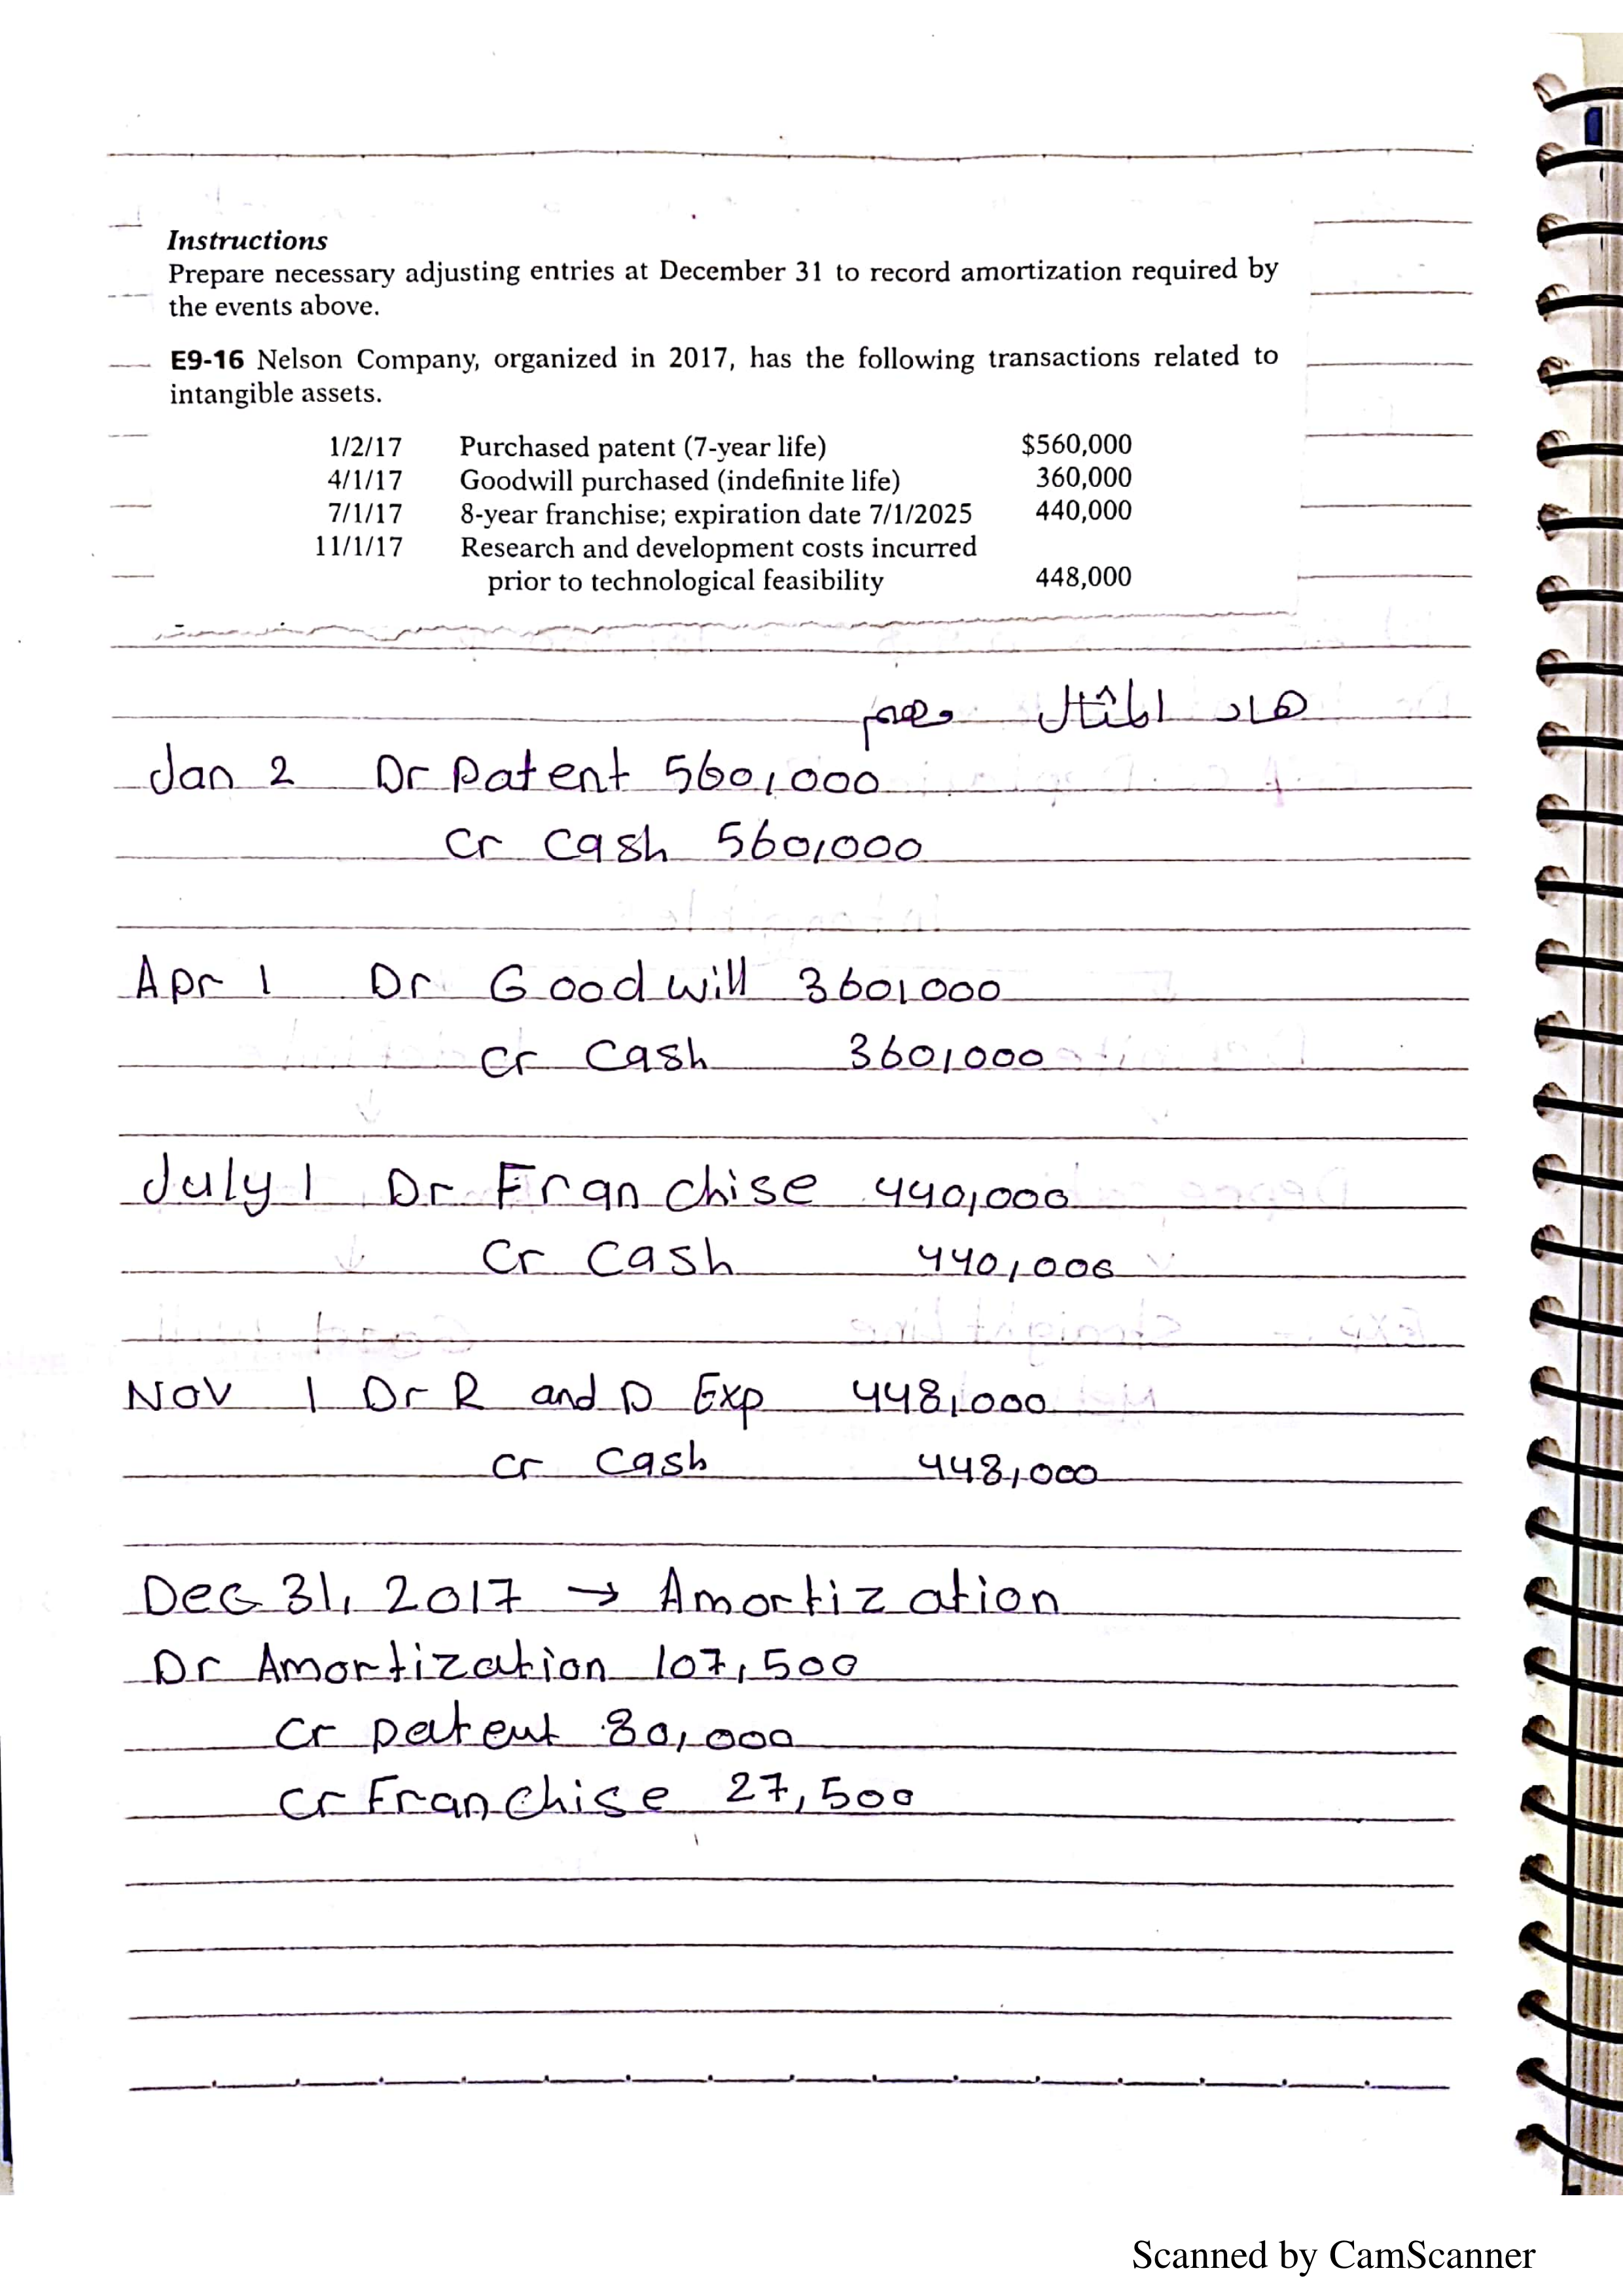 Instructions
Prepare necessary adjusting entries at December 31 to record amortization required by
the events above.
E9-16 Nelson Company, organized in 2017, has the following transactions related to
intangible assets.
1/2/17 Purchased patent (7-year life) $560,000
4/1/17 Goodwill purchased (indefinite life) 360,000
7/1/17 8-year franchise; expiration date 7/1/2025 440,000
11/1/17 Research and development costs incurred
prior to technological feasibility 448,000
هاد المثال مهم
Jan 2 Dr Patent 560,000
Cr Cash 560,000
Apr 1 Dr Goodwill 360,000
Cr Cash 360,000
July 1 Dr Franchise 440,000
Cr Cash 440,000
Nov 1 Dr R and D Exp 448,000
Cr Cash 448,000
Dec 31, 2017 → Amortization
Dr Amortization 107,500
Cr patent 80,000
Cr Franchise 27,500
Scanned by CamScanner